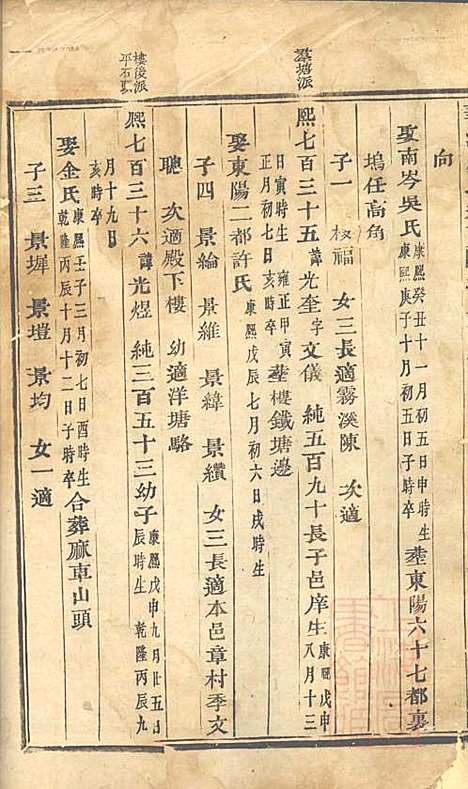 向
娶南岑吳氏康熙癸丑十一月初五日申時生康熙庚子十月初五日子時卒塟東陽六十七都裏
塢任高角
子一 福 女三長適霧溪陳 次適
燕塘派
熙七百三十五諱光奎字文儀 純五百九十長子邑庠生康熙戊申八月十三
日寅時生 雍正甲寅正月初七日亥時卒塟樓鐵塘邊
娶東陽二都許氏康熙戊辰七月初六日戌時生
子四 景綸 景維 景緯 景纘 女三長適本邑章村季文
聰 次適殿下樓 幼適洋塘駱
樓後派
平石
熙七百三十六諱光煜 純三百五十三幼子康熙戊申九月廿五日辰時生 乾隆丙辰九
月十九日亥時卒
娶金氏康熙壬子三月初七日酉時生乾隆丙辰十月十二日子時卒合葬麻車山頭
子三 景墀 景塏 景均 女一適